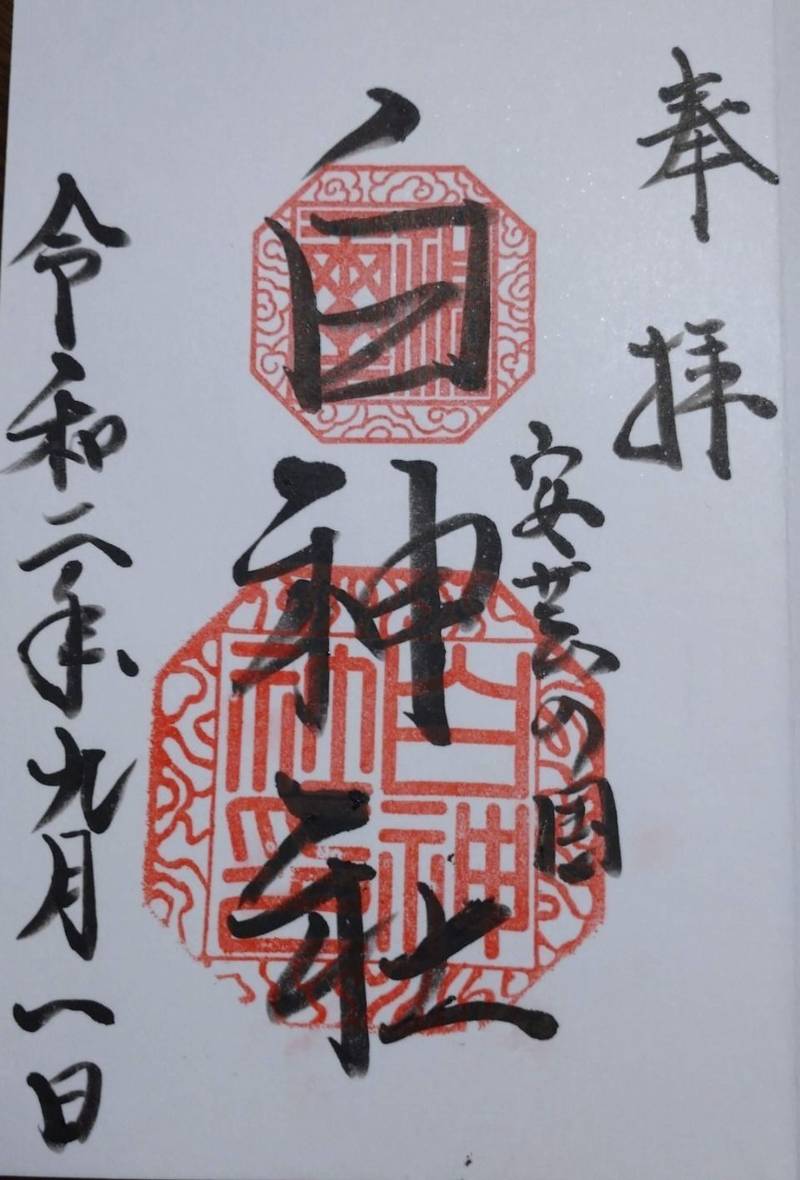 奉拝
安芸の国
白神社
令和二年九月一日
白神社印